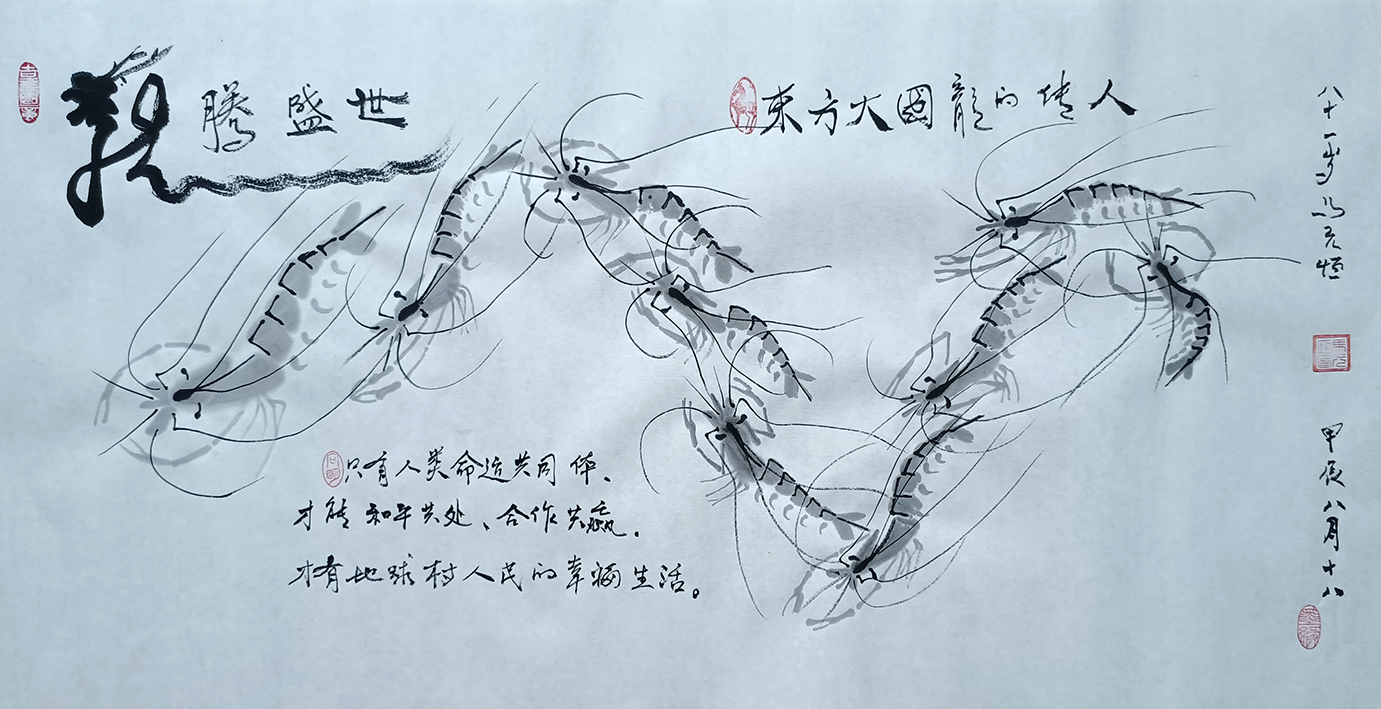 龍腾盛世
東方大國龍的传人
只有人类命运共同体、
才能和平共处、合作共赢.
才有地球村人民的幸福生活。
八十一岁冯元恒
甲辰八月十八